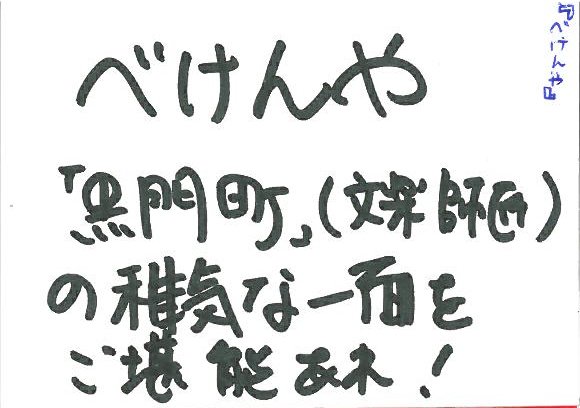 べけんや
『べけんや』
「黒門町」(文楽師匠)
の稚気な一面を
ご堪能あれ!